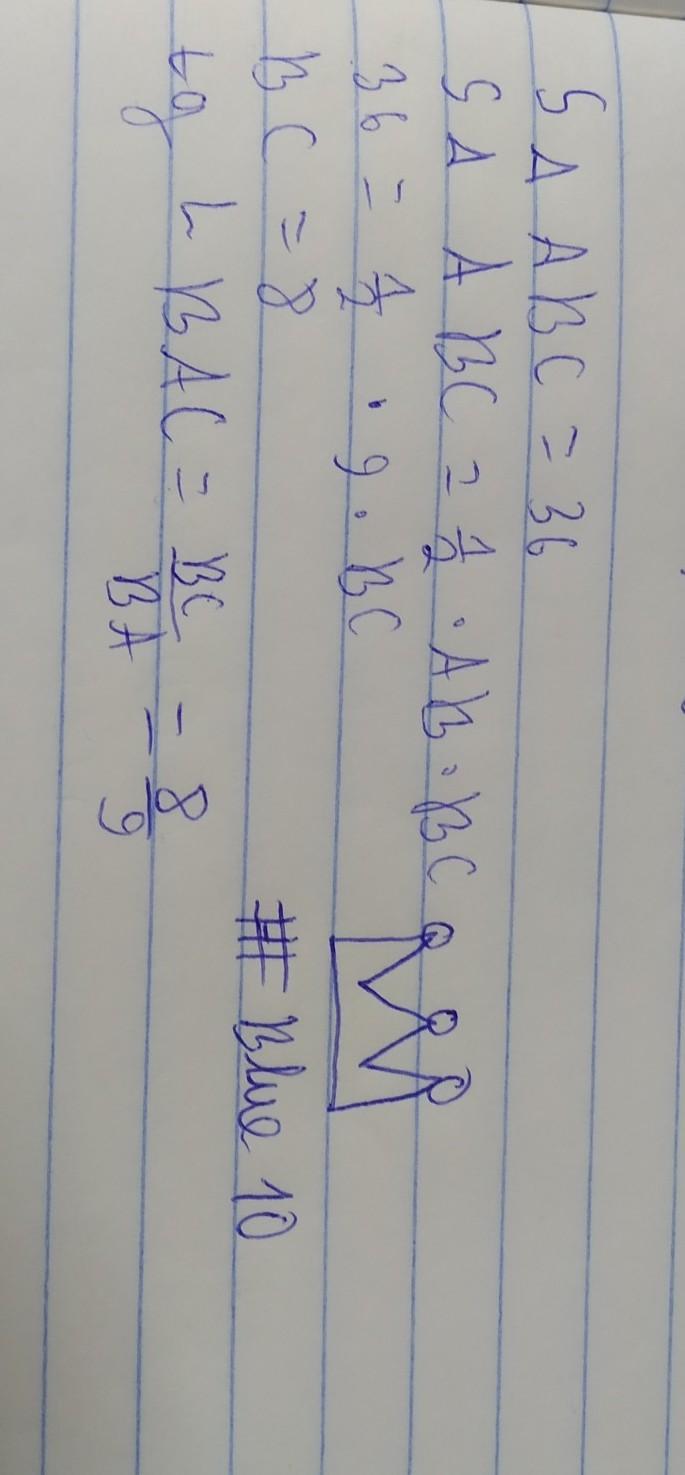 S Δ ABC = 36
S Δ ABC = 1/2 · AB · BC
36 = 1/2 · 9 · BC
BC = 8
tg ∠ BAC = BC/BA = 8/9
# Blue 10